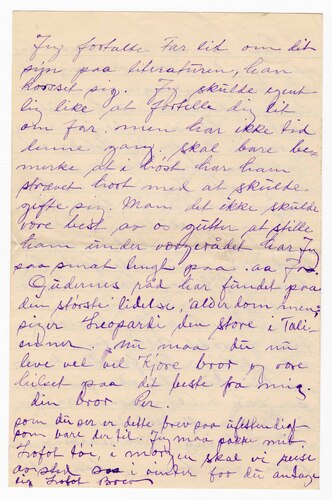 Jeg fortalte Far lit om dit
syn paa literaturen, han
korset sig. Jeg skulde egent
lig like at fortelle dig lit
om far. men har ikke tid
denne gang. skal bare be-
merke at i høst har han
strævet hort med at skulde
gifte sig. Man det ikke skulde
være best av os gutter at stille
ham under
paa
Gudernes raad har fundet paa
den største lidelse, alderdommen,
Leopardi den store i Tali-
ener. Nu maa du nu
leve vel vel Kjære bror og være
hilset paa det beste fra mig.
din bror Per.
som du ser er dette brev paa
som bare der til. Jeg maa pakke mit
Trofot tøi, i morgen skal vi reise
av sted i vinter for du
Trofot Brev